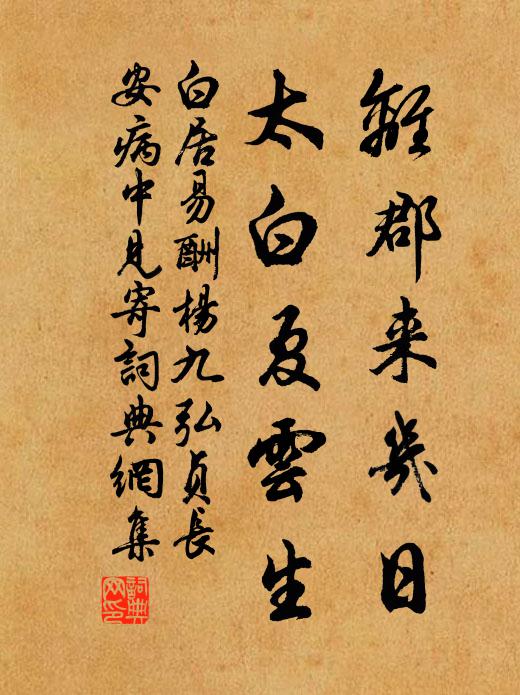 離郡来幾日
太白夏雲生
白居易酬楊九弘貞長
安病中見寄詞典網集
詞典网印